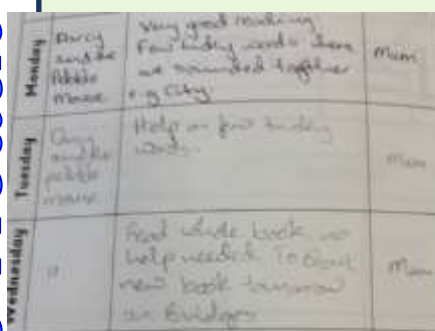 Monday
Darcy
and the
Pebble
Mouse
Very good reading
Few tricky words there
we sounded together
e.g City.
Mum
Tuesday
and the
pebble
mouse
Help on few tricky
words.
Mum
Wednesday
"
Read whole book no
help needed To start
new book tomorrow
on Bridges
Mum